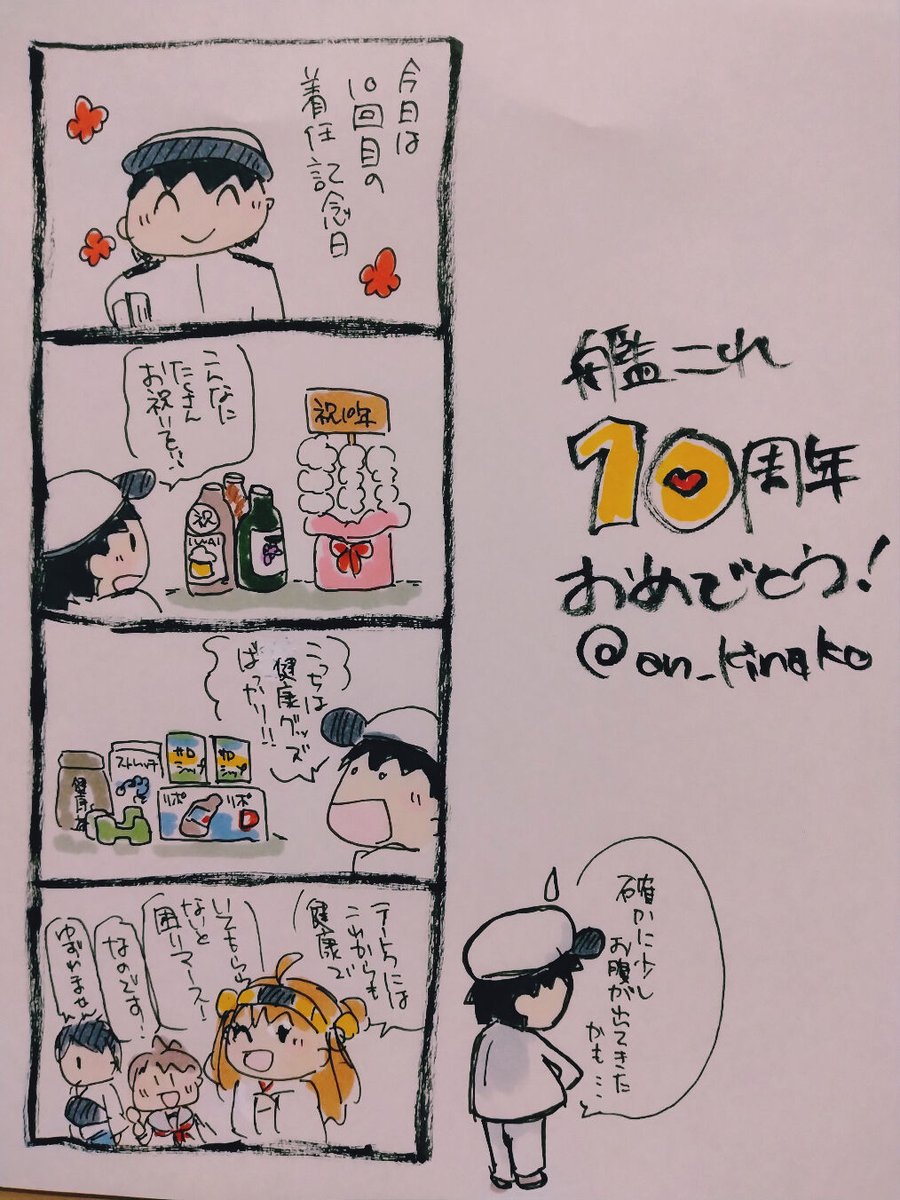 今日は
10回目の
着任記念日
こんなに
たくさん
お祝いを…
祝10年
祝
IWAI
こっちは
健康グッズ
ばっかり!!
健康
ストレッチ
サロ
シップ
サロ
シップ
リポ
リポ
テートクには
これからも
健康で
いてもらわ
ないと
困りマース!
なのです!
ゆずれません
艦これ
10周年
おめでとう!
@on_kinako
確かに少し
お腹が出てきた
かも…